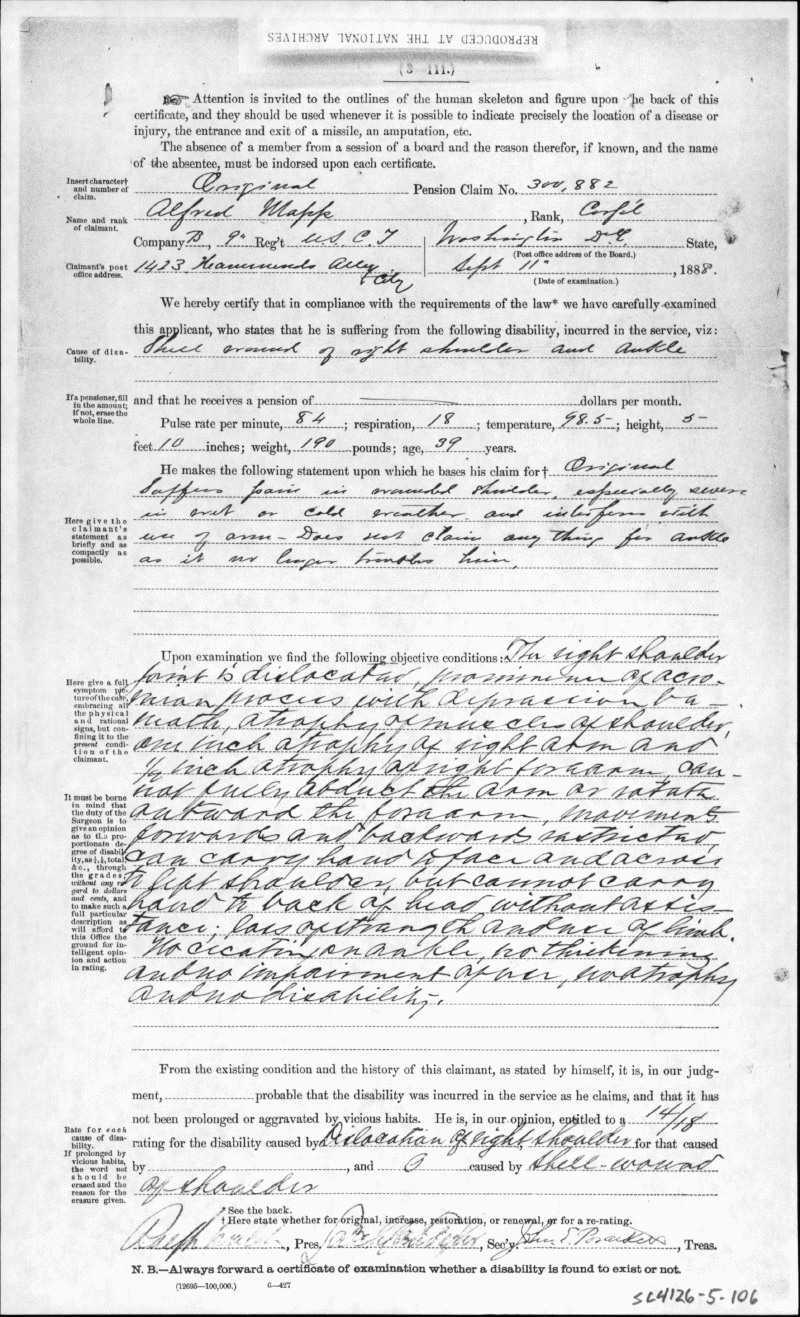 REPRODUCED AT THE NATIONAL ARCHIVES
(3—111.)
Attention is invited to the outlines of the human skeleton and figure upon the back of this
certificate, and they should be used whenever it is possible to indicate precisely the location of a disease or
injury, the entrance and exit of a missile, an amputation, etc.
The absence of a member from a session of a board and the reason therefor, if known, and the name
of the absentee, must be indorsed upon each certificate.
Insert character and number of claim.
Original Pension Claim No. 300,882
Name and rank of claimant.
Alfred Mapp, Rank, Corp'l
Company B, 9" Reg't U.S.C.T Washington D.C. State,
(Post office address of the Board.)
Claimant's post office address.
1423 Hammonds Alley City Sept 11", 1888.
(Date of examination.)
We hereby certify that in compliance with the requirements of the law* we have carefully examined
this applicant, who states that he is suffering from the following disability, incurred in the service, viz:
Cause of disability.
Shell wound of right shoulder and ankle
If a pensioner, fill in the amount; if not, erase the whole line.
and that he receives a pension of dollars per month.
Pulse rate per minute, 84; respiration, 18; temperature, 98.5; height, 5
feet 10 inches; weight, 190 pounds; age, 39 years.
He makes the following statement upon which he bases his claim for† Original
Here give the claimant's statement as briefly and as compactly as possible.
Suffers pain in wounded shoulder, especially severe
in wet or cold weather and interferes with
use of arm - Does not claim any thing for ankle
as it no longer troubles him.
Upon examination we find the following objective conditions: The right shoulder
Here give a full symptom picture of the case, embracing all the physical and rational signs, but confining it to the present condition of the claimant.
joint is dislocated, prominence of acro-
mean process with depression be-
neath, atrophy of muscles of shoulder,
one inch atrophy of right arm and
1/2 inch atrophy of right forearm, can-
not fully abduct the arm or rotate
It must be borne in mind that the duty of the Surgeon is to give an opinion as to the proportionate degree of disability, as ¼, ½, total, &c., through the grades, without any regard to dollars and cents, and to make such a full particular description as will afford to this Office the ground for intelligent opinion and action in rating.
outward the forearm, movements
forwards and backwards restricted,
can carry hand to face and across
to left shoulder, but cannot carry
hand to back of head without assis-
tance; loss of strength and use of limb.
No cicatrix on ankle, no thickening
and no impairment of use, no atrophy
and no disability.
From the existing condition and the history of this claimant, as stated by himself, it is, in our judg-
ment, probable that the disability was incurred in the service as he claims, and that it has
not been prolonged or aggravated by vicious habits. He is, in our opinion, entitled to a 14/18
Rate for each cause of disability. If prolonged by vicious habits, the word not should be erased and the reason for the erasure given.
rating for the disability caused by Dislocation of right shoulder for that caused
by , and 0 caused by shell-wound
of shoulder
* See the back.
† Here state whether for original, increase, restoration, or renewal, or for a re-rating.
, Pres. , Sec'y. John E. , Treas.
N. B.—Always forward a certificate of examination whether a disability is found to exist or not.
(12695—100,000.) 6—427
SC4126-5-106